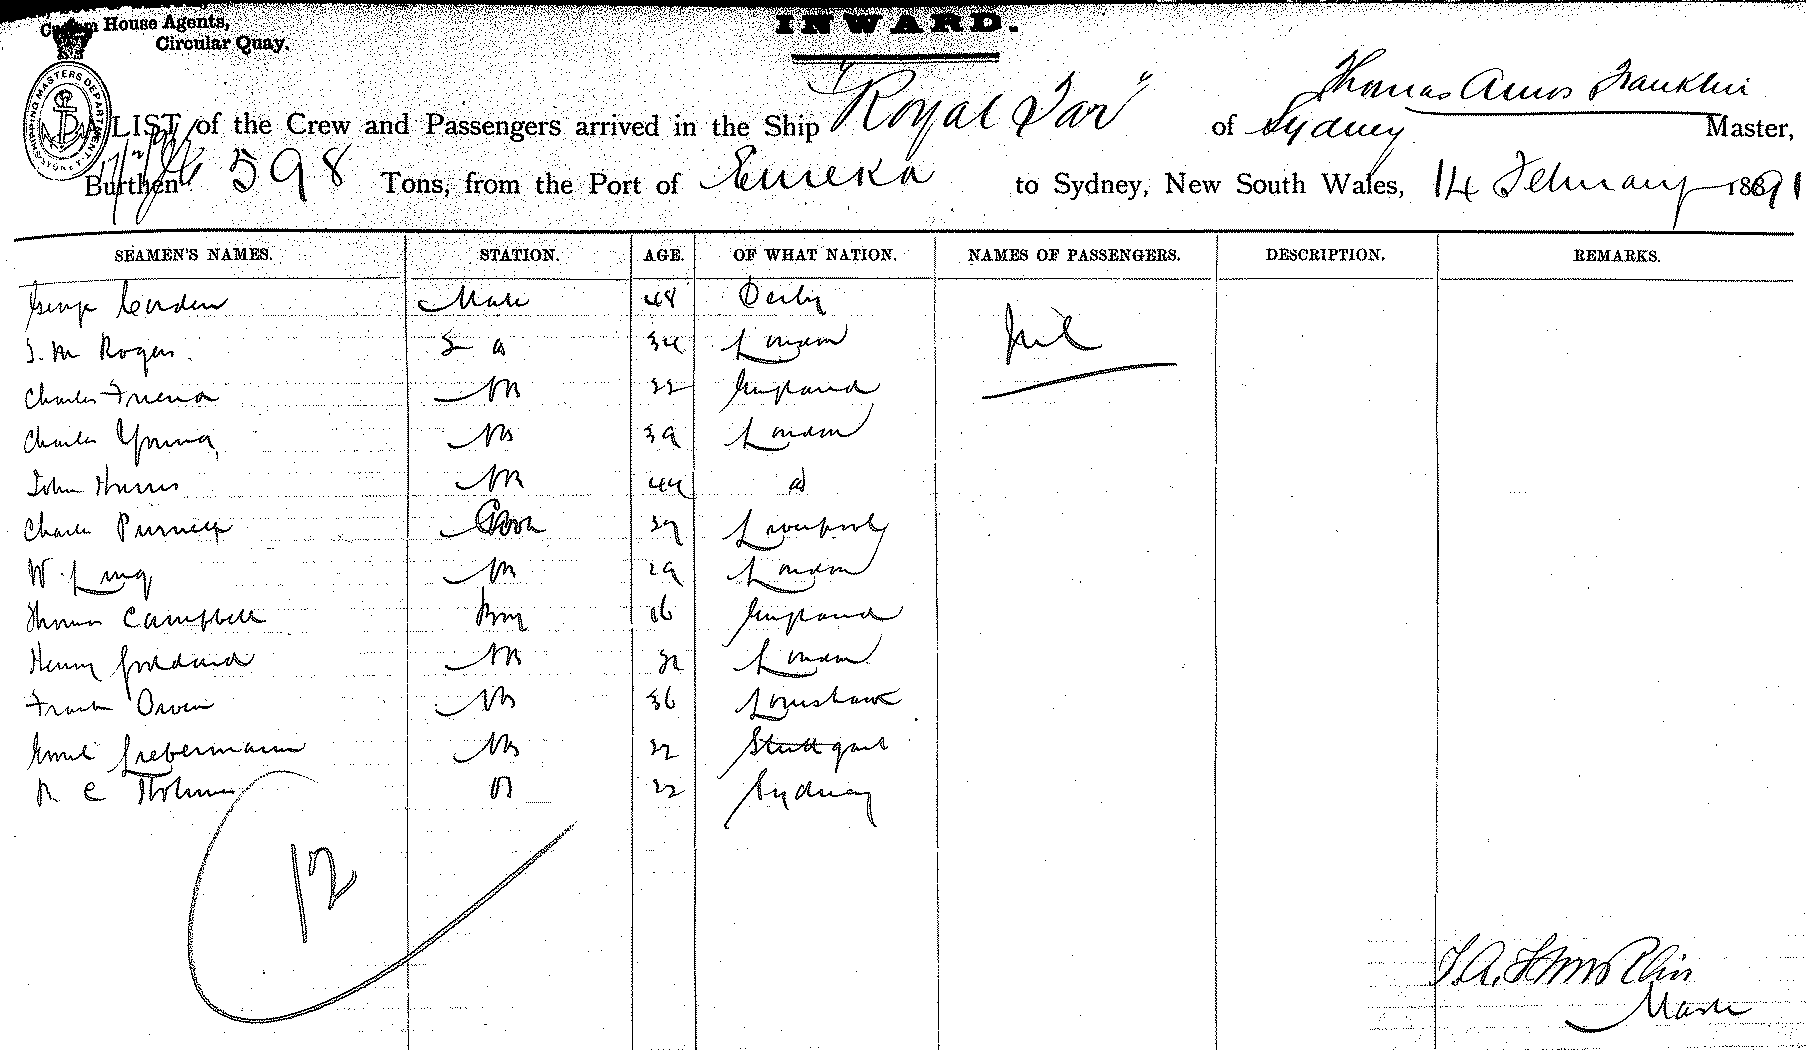 Custom House Agents,
Circular Quay.
INWARD.
SHIPPING MASTERS DEPARTMENT
Thomas Amos Franklin
LIST of the Crew and Passengers arrived in the Ship "Royal Tar" of Sydney Master,
Burthen 598 Tons, from the Port of Eureka to Sydney, New South Wales, 14 February 1891
SEAMEN'S NAMES. STATION. AGE. OF WHAT NATION. NAMES OF PASSENGERS. DESCRIPTION. REMARKS.
George Mate 48 Derby
Nil
S. M Rogers 34 London
Charles Friend AB 22 England
Charles Young AB 39 London
John Harris AB 44 do
Charles Purnell Cook 39 Liverpool
W. Ling AB 29 London
Thomas Campbell Boy 16 England
Henry Goddard AB 32 London
Frank Owen AB 36
Emil Liebermann AB 22 Stuttgart
22 Sydney
12
T. A. Franklin
Master